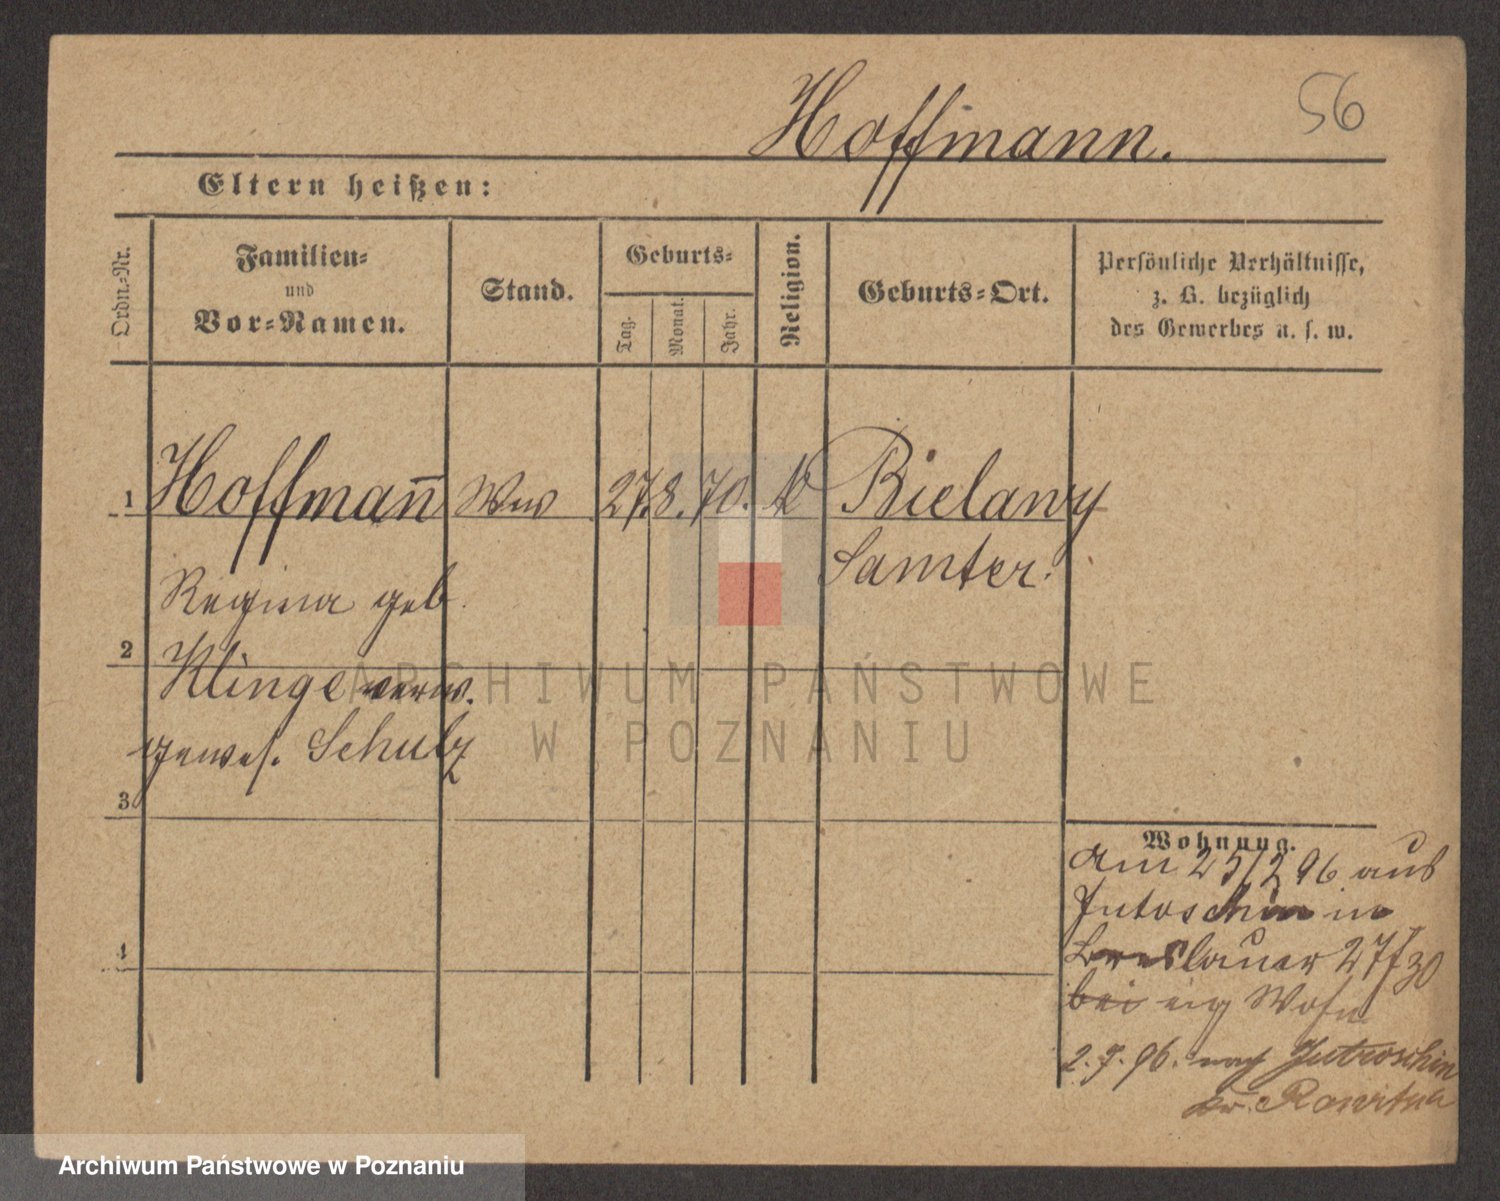 56
Hoffmann.
Eltern heißen:
Ordn.-Nr.
Familien-
und
Vor-Namen.
Stand.
Geburts-
Tag.
Monat.
Jahr.
Religion.
Geburts-Ort.
Persönliche Verhältnisse,
z. B. bezüglich
des Gewerbes u. s. w.
1 Hoffman̄ Ww 27. 8. 70. Bielawy
Samter.
Regina geb.
2
Klinge verw.
gewes. Schulz
3
4
Wohnung.
am 25/2 96 aus
Jutroschin in
Breslauer 27/30
bei eig Wohn
2.7.96. nach Jutroschin
Kr. Rawitsch
ARCHIWUM PAŃSTWOWE
W POZNANIU
Archiwum Państwowe w Poznaniu